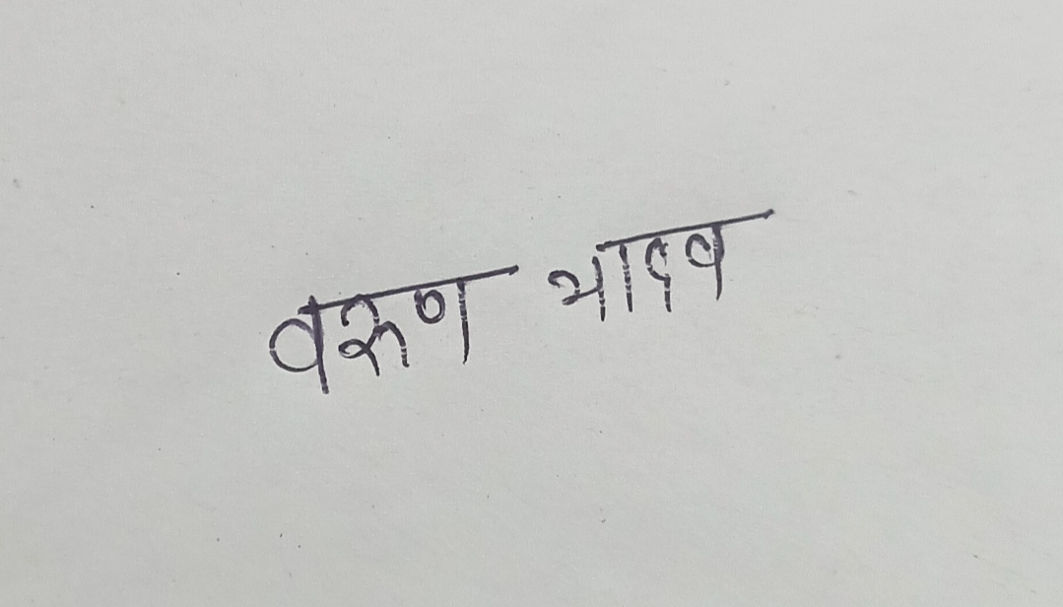 वरुण यादव